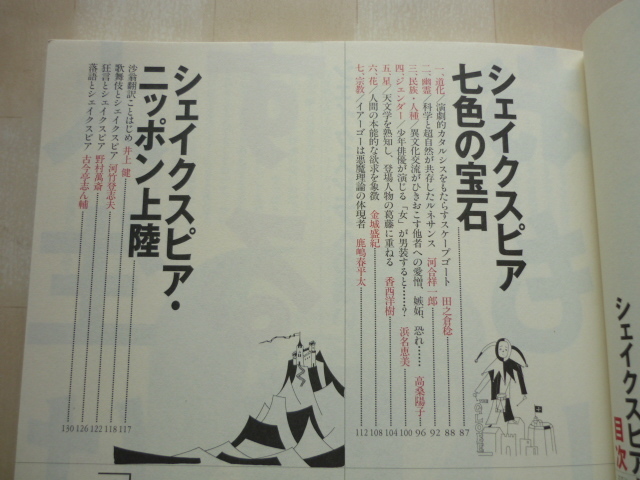 シェイクスピア
七色の宝石
87
一、道化／演劇的カタルシスをもたらすスケープゴート 田之倉稔 88
二、幽霊／科学と超自然が共存したルネサンス 河合祥一郎 92
三、民族・人種／異文化交流がひきおこす他者への愛憎、嫉妬、恐れ…… 高桑陽子 96
四、ジェンダー／少年俳優が演じる「女」が男装すると……？ 浜名恵美 100
五、星／天文学を熟知し、登場人物の葛藤に重ねる 香西洋樹 104
六、花／人間の本能的な欲求を象徴 金城盛紀 108
七、宗教／イアーゴーは悪魔理論の体現者 鹿嶋春平太 112
シェイクスピア・
ニッポン上陸
117
沙翁翻訳ことはじめ 井上健 118
歌舞伎とシェイクスピア 河竹登志夫 122
狂言とシェイクスピア 野村萬斎 126
落語とシェイクスピア 古今亭志ん輔 130
シェイクスピア
目次